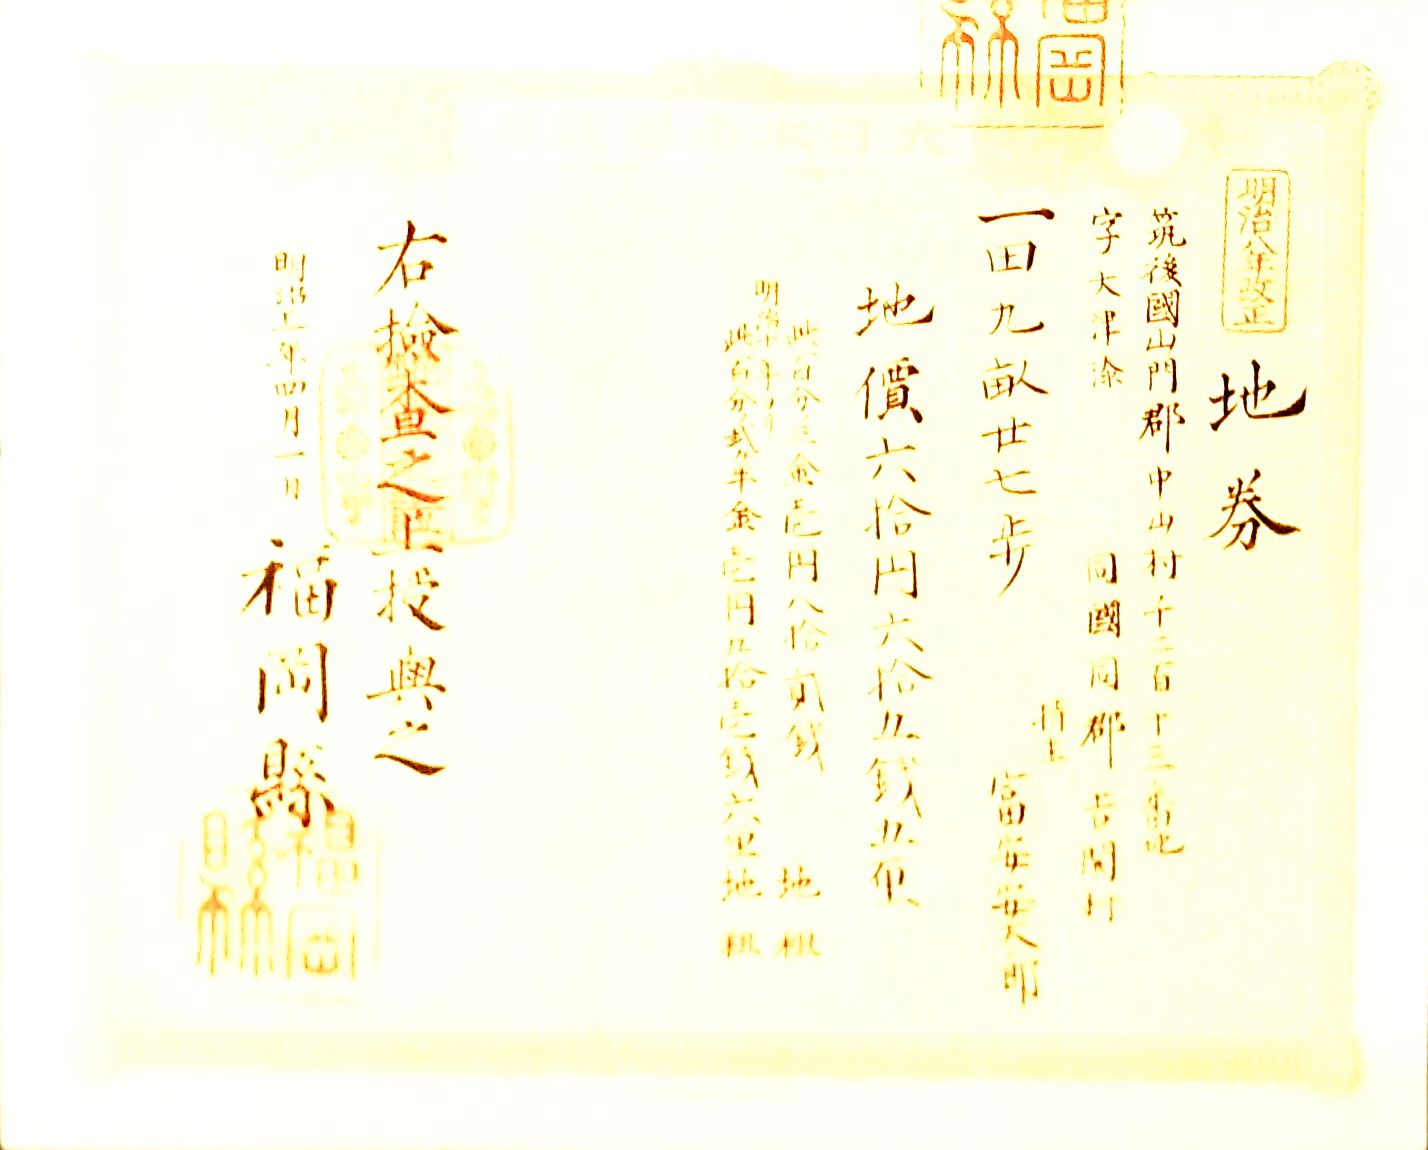 明治八年改正
地券
筑後國山門郡中山村千二百十三番地
字大津添
同國同郡吉開村
一田九畝廿七歩
持主
富安安太郎
地價六拾円六拾五銭五厘
此百分三金壱円八拾貳銭
地租
明治十年ヨリ
此百分貳ケ半金壱円五拾壱銭六厘
地租
右撿査之上授與之
明治十一年四月一日
福岡縣